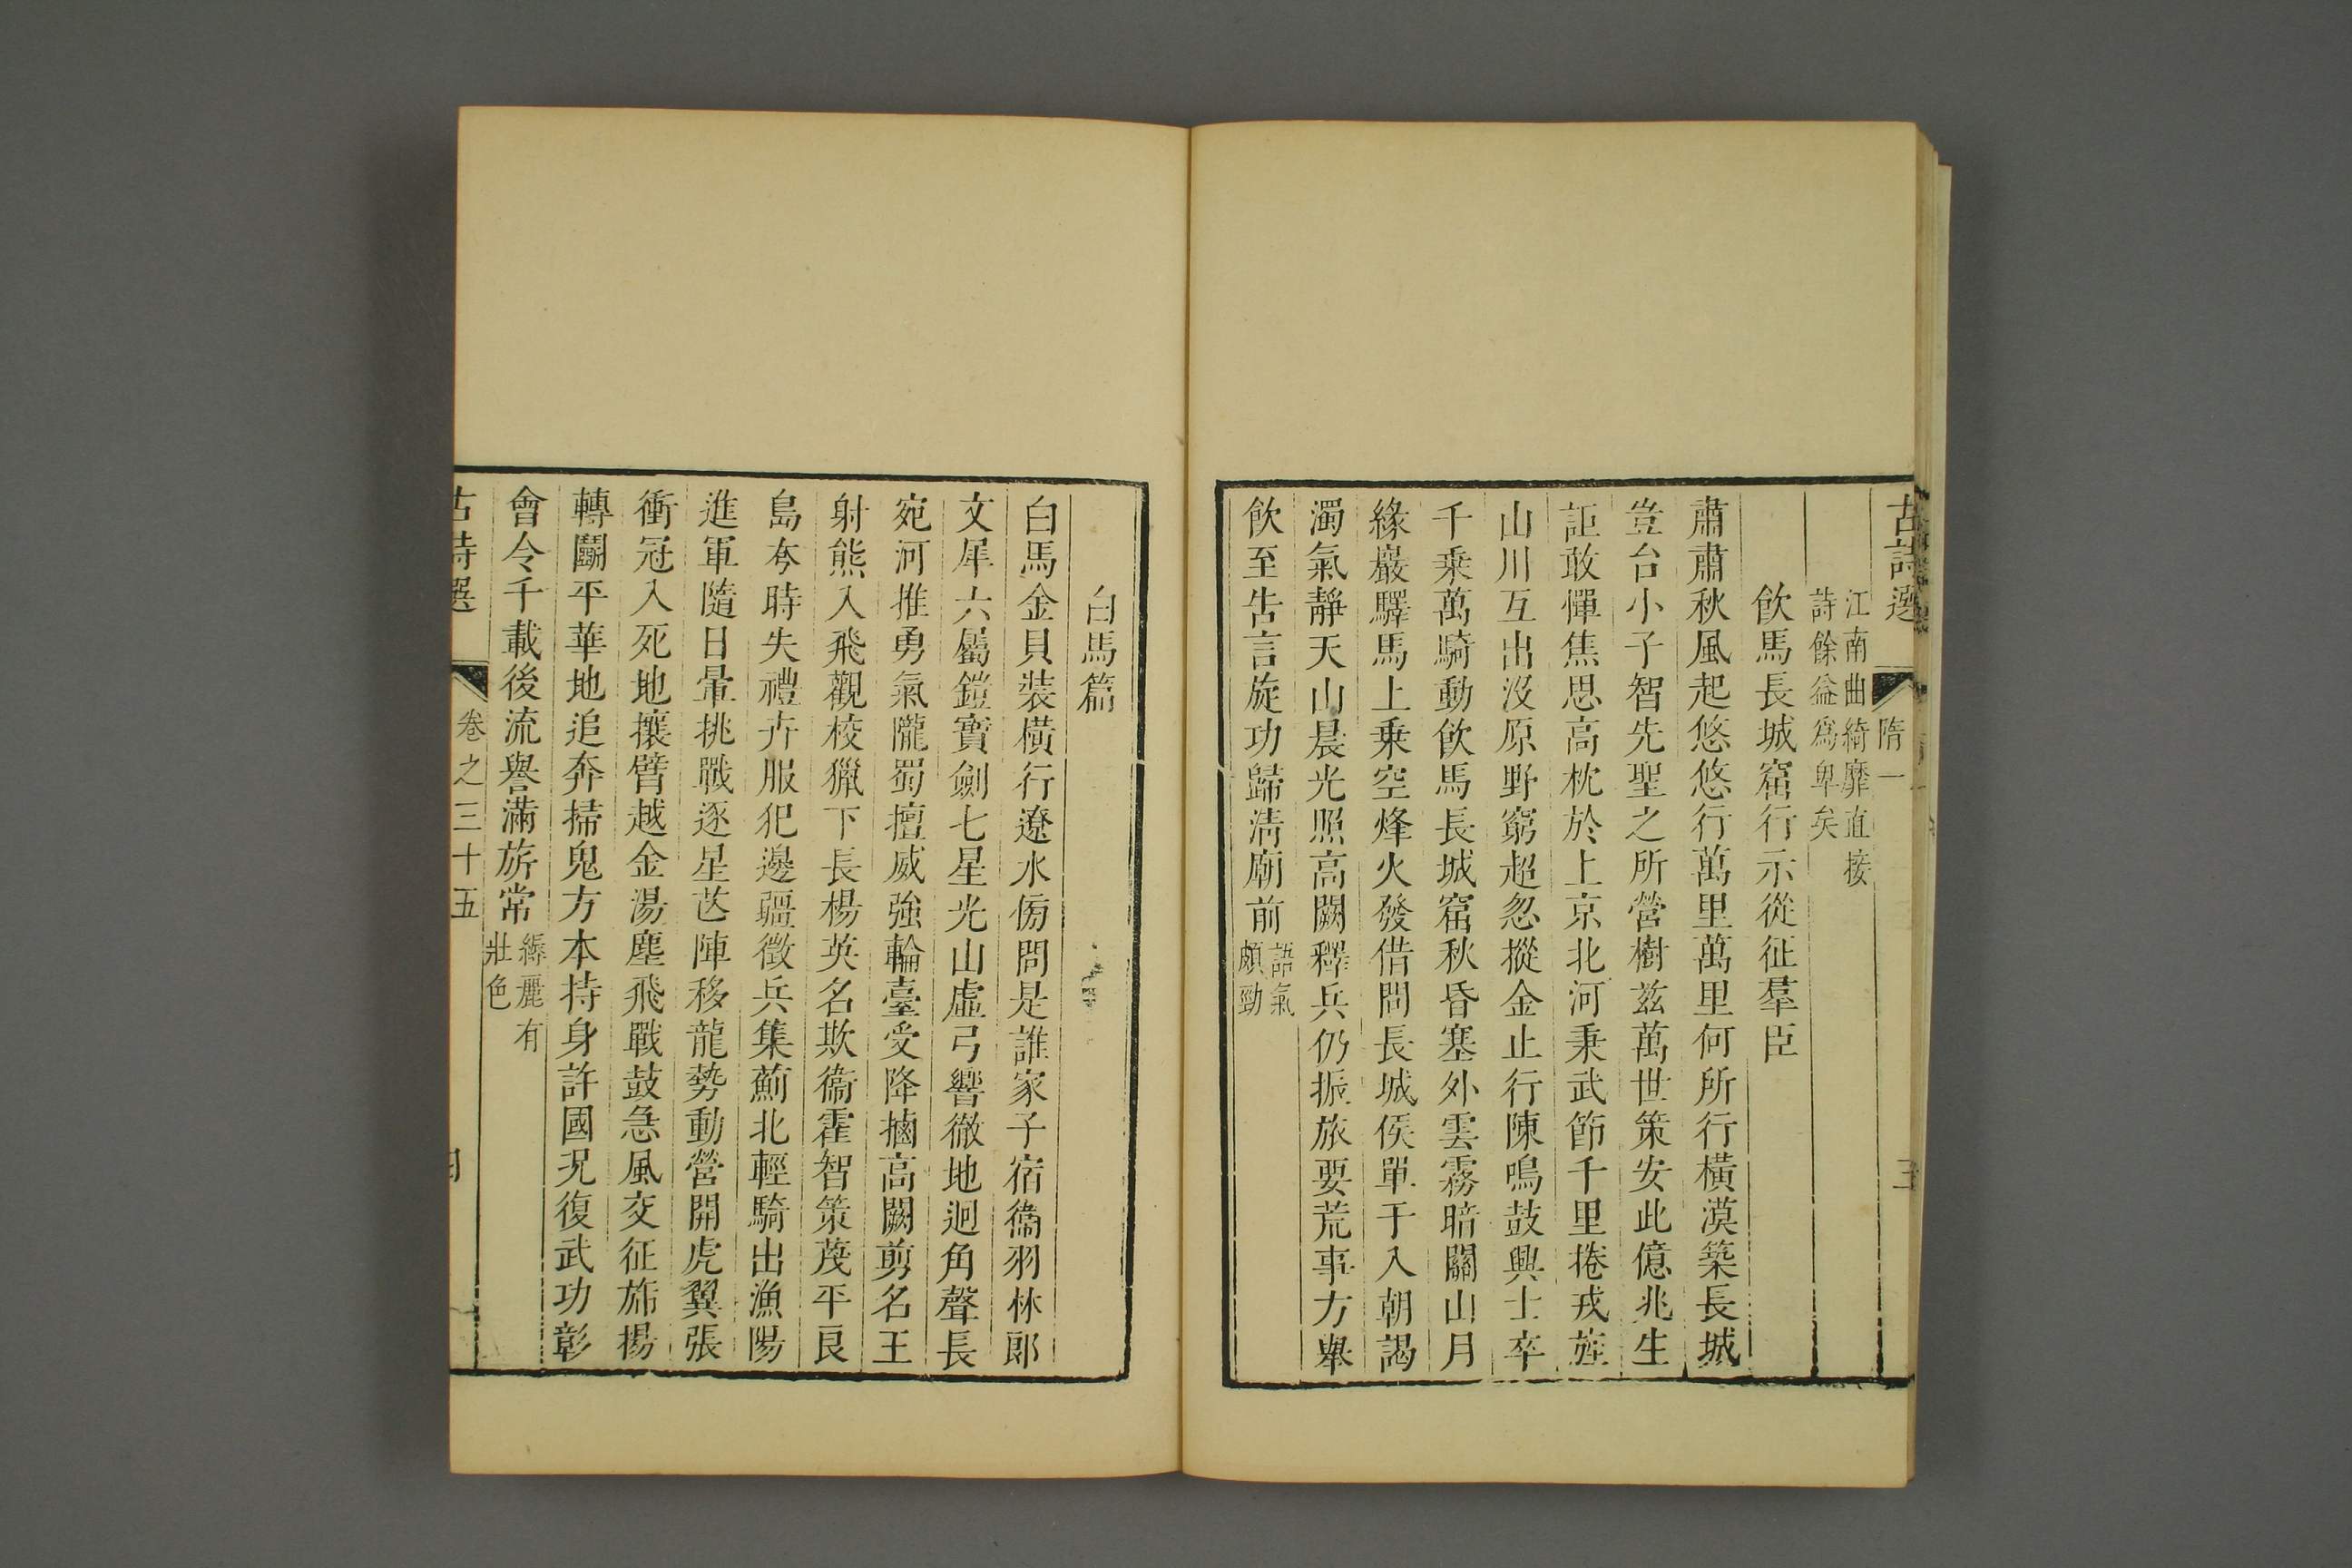 古詩選 隋一 三
江南曲綺靡直接
詩餘益爲卑矣
飲馬長城窟行示從征羣臣
肅肅秋風起悠悠行萬里萬里何所行橫漠築長城
豈台小子智先聖之所營樹茲萬世策安此億兆生
詎敢憚焦思高枕於上京北河秉武節千里捲戎旌
山川互出沒原野窮超忽摐金止行陳鳴鼓興士卒
千乗萬騎動飲馬長城窟秋昏塞外雲霧暗關山月
緣巖驛馬上乗空烽火發借問長城侯單于入朝謁
濁氣靜天山晨光照高闕釋兵仍振旅要荒事方舉
飲至告言旋功歸淸廟前 語氣
頗勁
白馬篇
白馬金貝裝橫行遼水傍問是誰家子宿衞羽林郎
文犀六屬鎧寶劍七星光山虛弓響徹地迥角聲長
宛河推勇氣隴蜀擅威強輪臺受降擄高闕剪名王
射熊入飛觀校獵下長楊英名欺衞霍智策蔑平良
島夷時失禮卉服犯邊疆徵兵集薊北輕騎出漁陽
進軍隨日暈挑戰逐星芒陣移龍勢動營開虎翼張
衝冠入死地攘臂越金湯塵飛戰鼓急風交征旆揚
轉鬭平華地追奔掃鬼方本持身許國況復武功彰
會令千載後流譽滿旂常 縟麗有
壯色
古詩選 卷之三十五 四